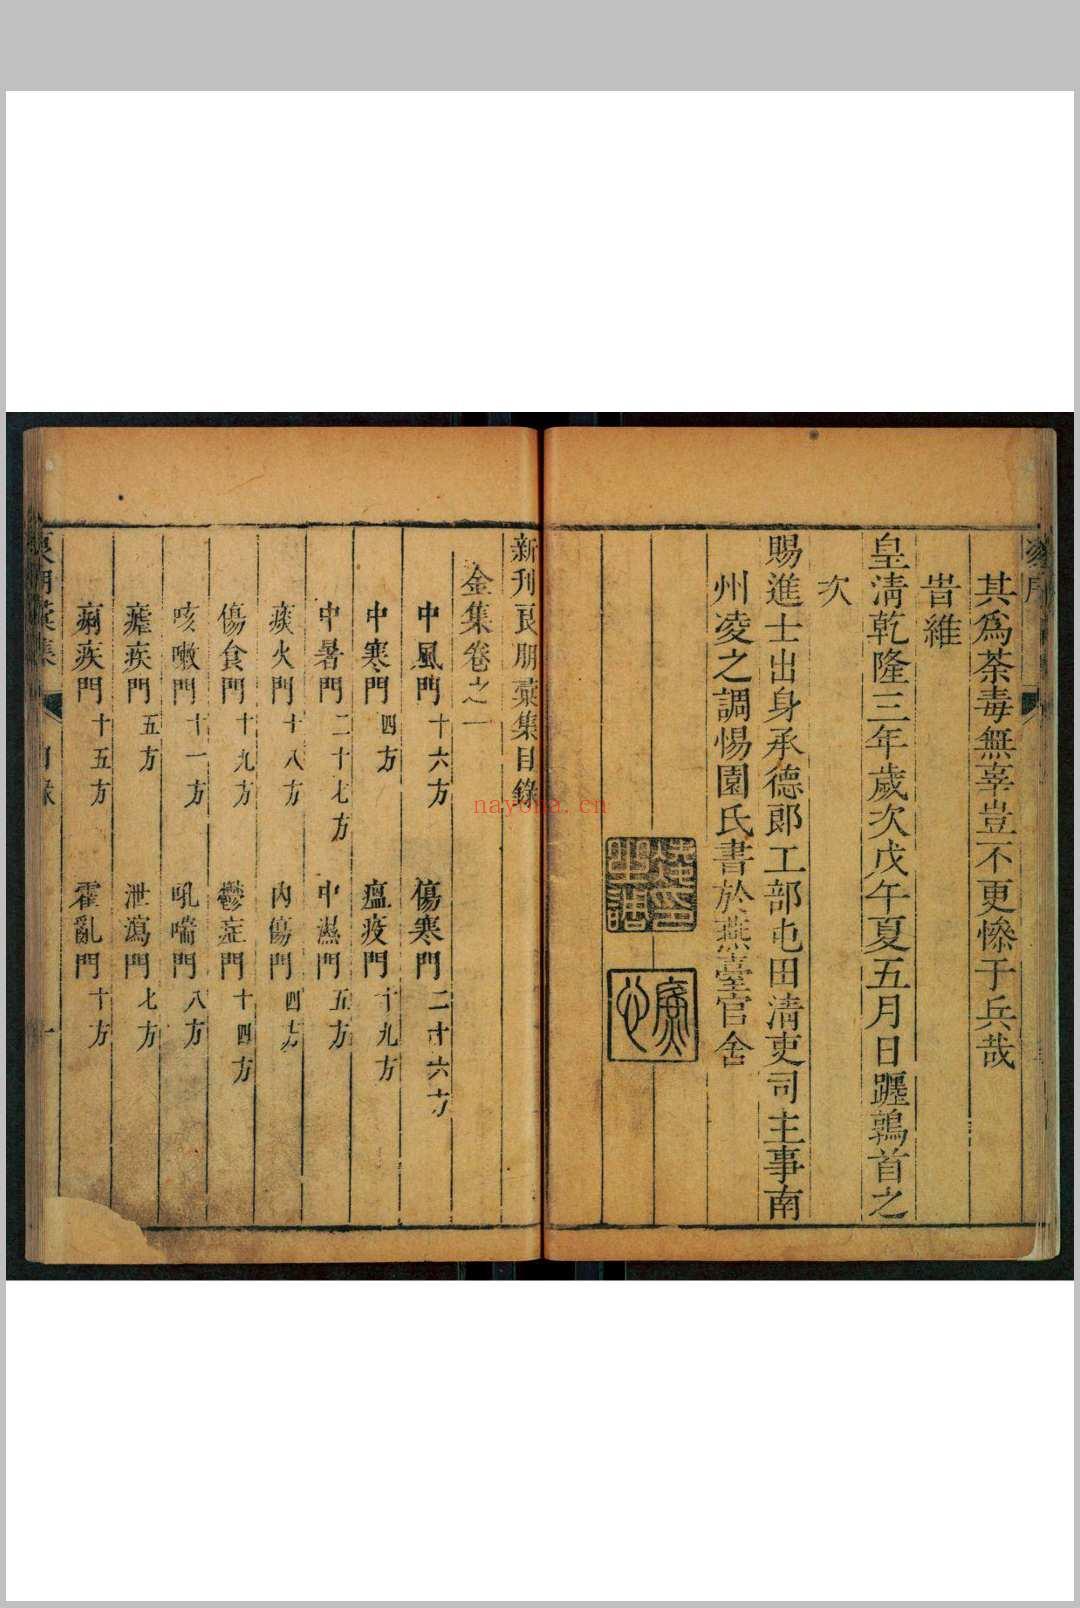 其為荼毒無辜豈不更慘于兵哉
峕維
皇清乾隆三年歲次戊午夏五月日躔鶉首之
次
賜進士出身承德郎工部屯田清吏司主事南
州凌之調惕園氏書於燕臺官舍
新刊良朋彙集目錄
金集卷之一
中風門 十六方 傷寒門 二十六方
中寒門 四方 瘟疫門 十九方
中暑門 二十七方 中濕門 五方
痰火門 十八方 內傷門 四方
傷食門 十九方 鬱症門 十四方
咳嗽門 十一方 吼喘門 八方
瘧疾門 五方 泄瀉門 七方
痢疾門 十五方 霍亂門 十方
良朋彙集 目錄 一
nayona.cn